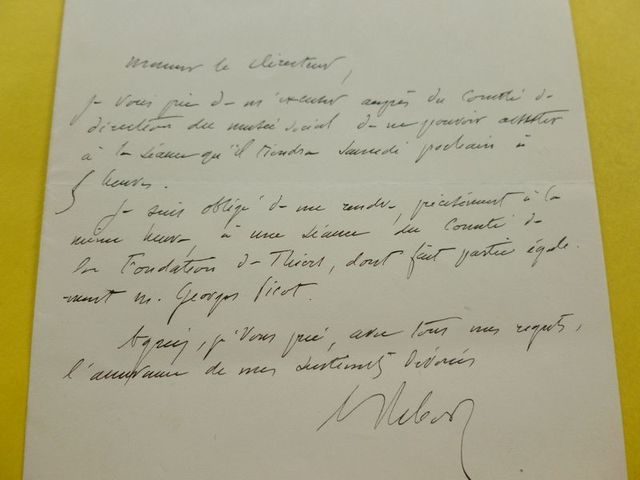 Monsieur le Directeur,
Je vous prie de m'excuser auprès du Comité de
direction du musée social de ne pouvoir assister
à la séance qu'il tiendra samedi prochain à
5 heures.
Je suis obligé de me rendre, précisément à la
même heure, à une séance du Comité de
la Fondation de Thiers, dont fait partie égale-
ment M. Georges Picot.
Agréez, je vous prie, avec tous mes regrets,
l'assurance de mes sentiments dévoués